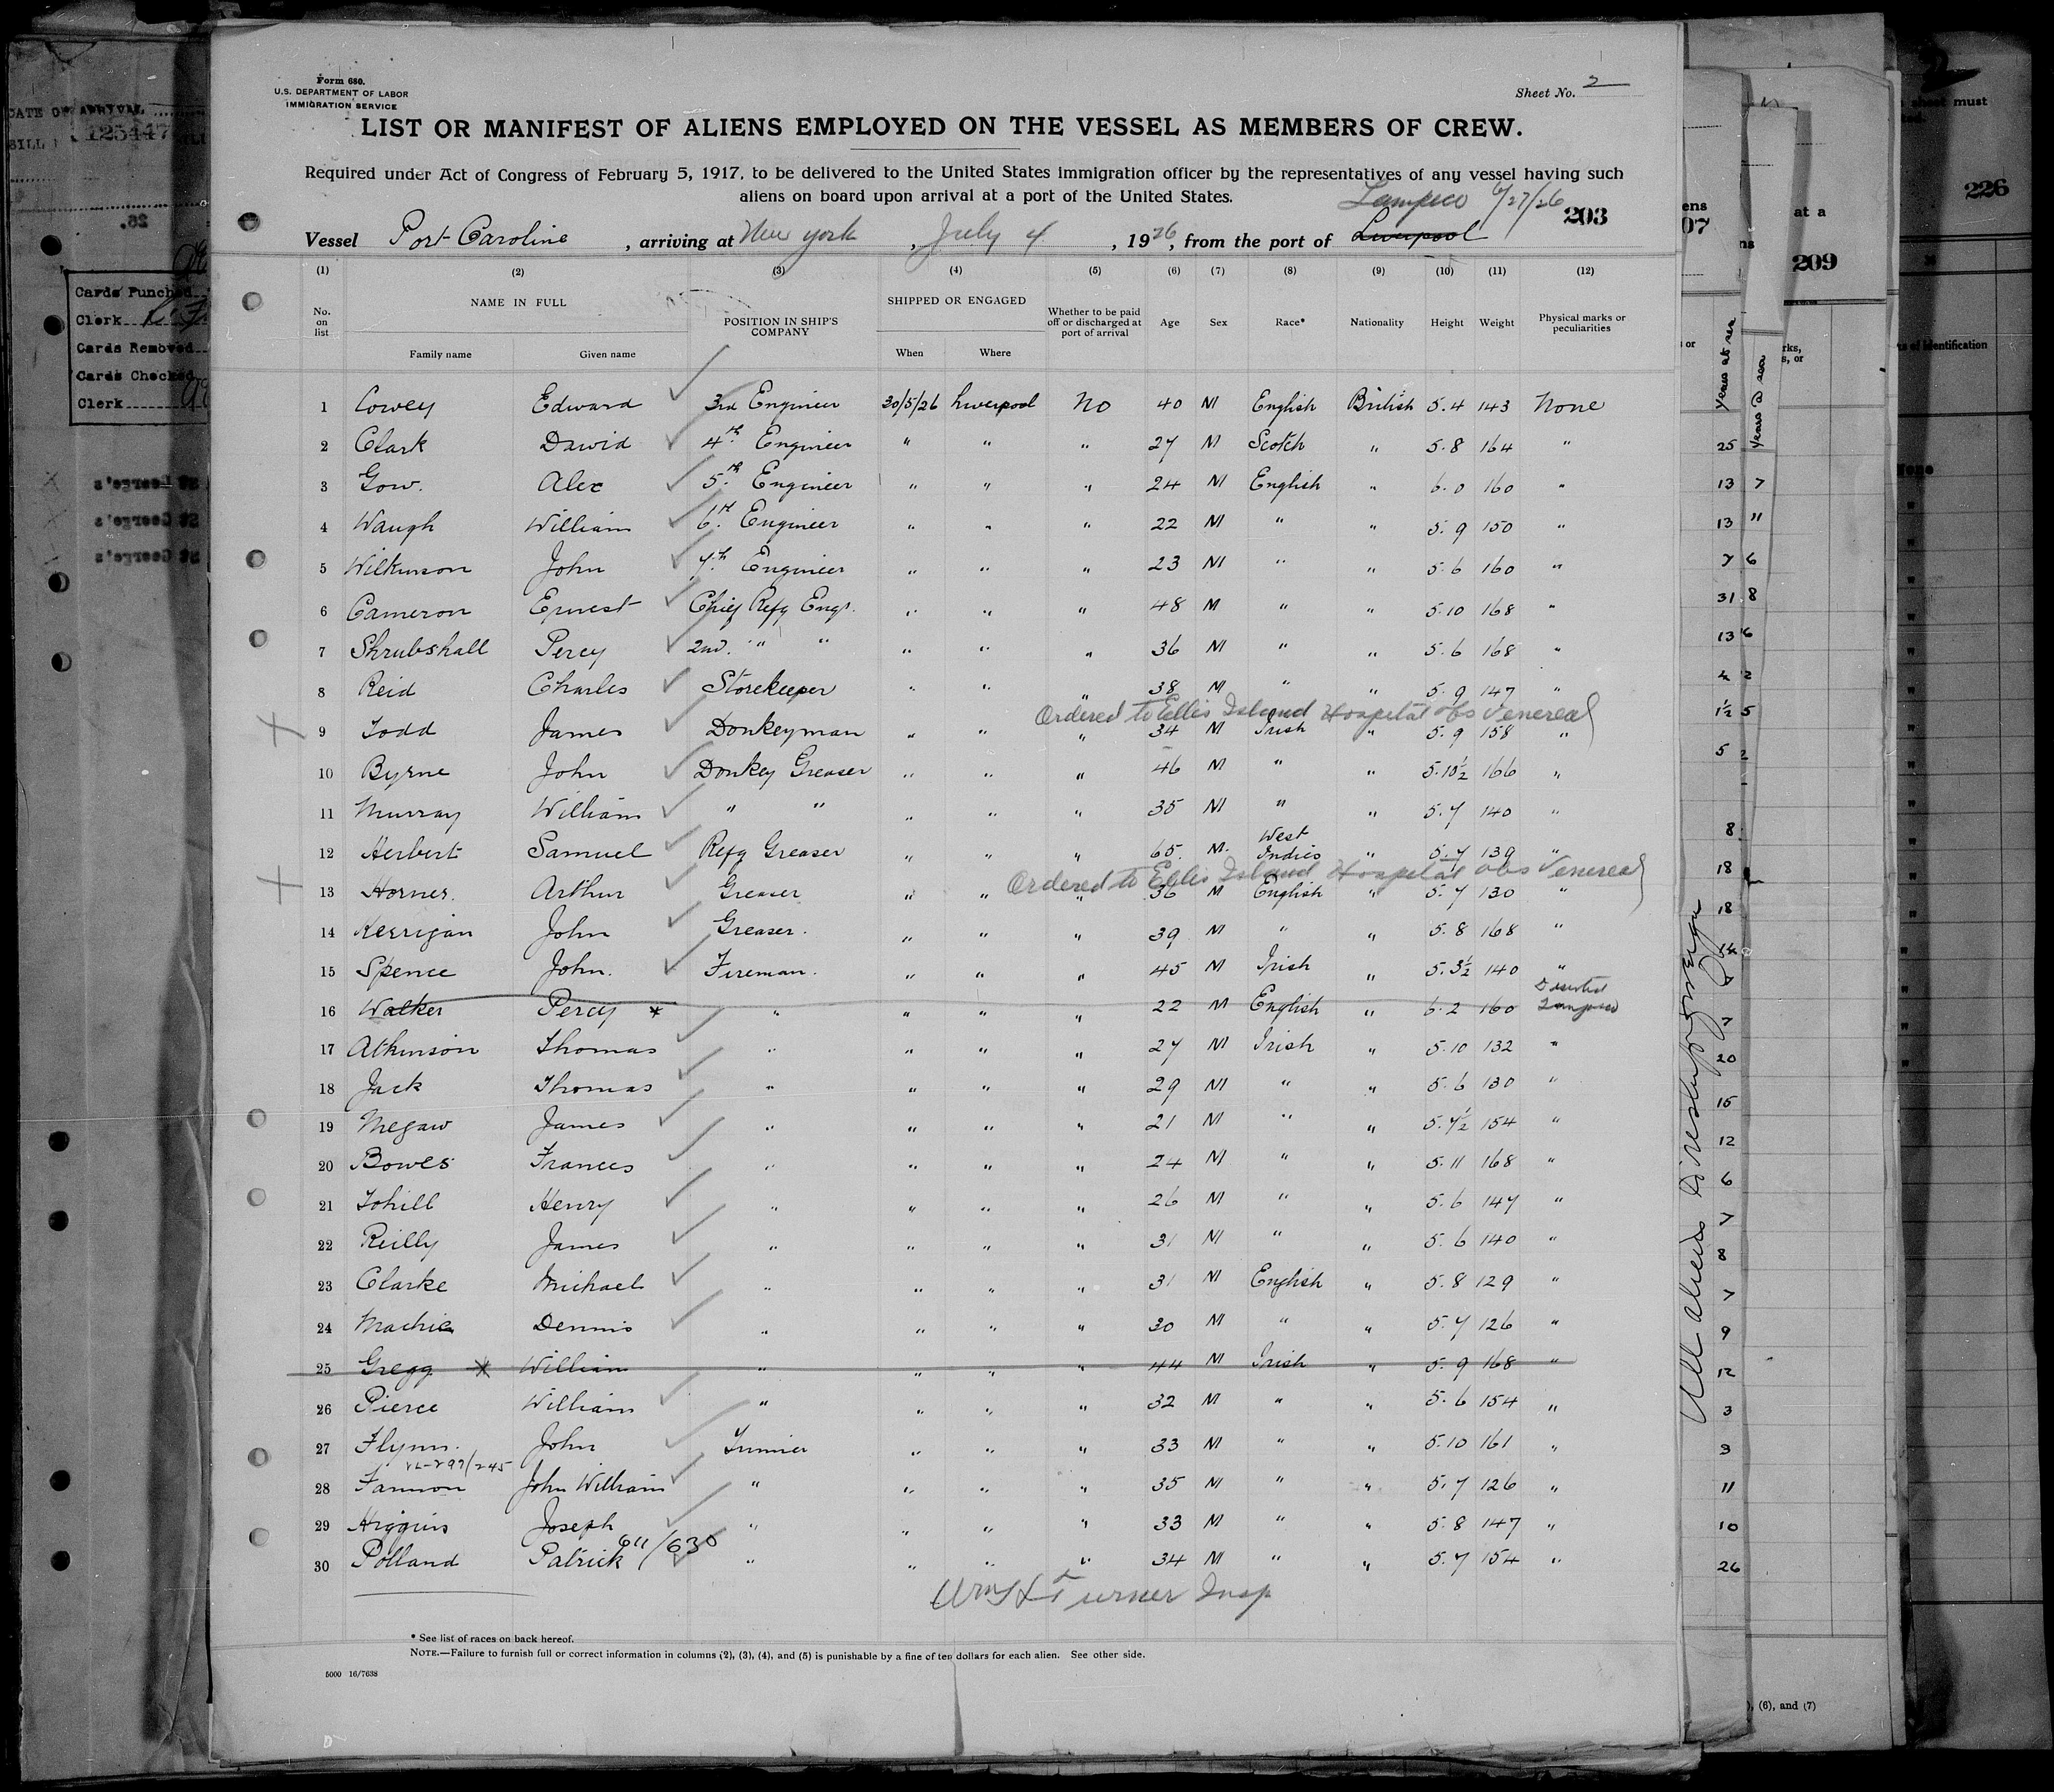 Form 680.
U.S. DEPARTMENT OF LABOR
IMMIGRATION SERVICE
Sheet No. 2
LIST OR MANIFEST OF ALIENS EMPLOYED ON THE VESSEL AS MEMBERS OF CREW.
Required under Act of Congress of February 5, 1917, to be delivered to the United States immigration officer by the representatives of any vessel having such
aliens on board upon arrival at a port of the United States.
Tampico 6/27/26 203
Vessel Port Caroline , arriving at New York , July 4 , 1926, from the port of Liverpool
(1) (2) (3) (4) (5) (6) (7) (8) (9) (10) (11) (12)
No. on list NAME IN FULL Family name Given name POSITION IN SHIP'S COMPANY SHIPPED OR ENGAGED When Where Whether to be paid off or discharged at port of arrival Age Sex Race* Nationality Height Weight Physical marks or peculiarities
1 Cowey Edward 3rd Engineer 30/5/26 Liverpool No 40 M English British 5.4 143 None
2 Clark David 4th Engineer " " " 27 M Scotch " 5.8 164 "
3 Gow. Alec 5th Engineer " " " 24 M English " 6.0 160 "
4 Waugh William 6th Engineer " " " 22 M " " 5.9 150 "
5 Wilkinson John 7th Engineer " " " 23 M " " 5.6 160 "
6 Cameron Ernest Chief Refg Engr. " " " 48 M " " 5.10 168 "
7 Shrubshall Percy 2nd. " " " " " 36 M " " 5.6 168 "
8 Reid Charles Storekeeper " " " 38 M " " 5.9 147 "
Ordered to Ellis Island Hospital obs Venereal
9 Todd James Donkeyman " " " 34 M Irish " 5.9 158 "
10 Byrne John Donkey Greaser " " " 46 M " " 5.10½ 166 "
11 Murray William " " " " " 35 M " " 5.7 140 "
12 Herbert Samuel Refg Greaser " " " 65. M. West Indies " 5.7 139 "
Ordered to Ellis Island Hospital obs Venereal
13 Horner. Arthur Greaser " " " 36 M English " 5.7 130 "
14 Kerrigan John Greaser. " " " 39 M " " 5.8 168 "
15 Spence John. Fireman. " " " 45 M Irish " 5.3½ 140 "
16 Walker Percy * " " " " 22 M English " 6.2 160 Deserted Tampico
17 Atkinson Thomas " " " " 27 M Irish " 5.10 132 "
18 Jack Thomas " " " " 29 M " " 5.6 130 "
19 Megaw James " " " " 21 M " " 5.7½ 154 "
20 Bowes Frances " " " " 24 M " " 5.11 168 "
21 Tohill Henry " " " " 26 M " " 5.6 147 "
22 Reilly James " " " " 31 M " " 5.6 140 "
23 Clarke Michael " " " " 31 M English " 5.8 129 "
24 Mackie Dennis " " " " 30 M " " 5.7 126 "
25 Gregg * William " " " " 44 M Irish " 5.9 168 "
26 Pierce William " " " " 32 M " " 5.6 154 "
27 Flynn. John Trimmer " " " 33 M " " 5.10 161 "
28 Fannon John William " " " " 35 M " " 5.7 126 "
29 Higgins Joseph " " " " 33 M " " 5.8 147 "
611/630
30 Polland Patrick " " " " 34 M " " 5.7 154 "
Turner Insp
* See list of races on back hereof.
NOTE.—Failure to furnish full or correct information in columns (2), (3), (4), and (5) is punishable by a fine of ten dollars for each alien. See other side.
5000 16/7638
DATE OF ARRIVAL
125447
Cards Punched
Clerk
Cards Removed
Cards Checked
Clerk
07
at a
209
226
sheet must
of identification
Years at sea
Years @ sea
, (6), and (7)